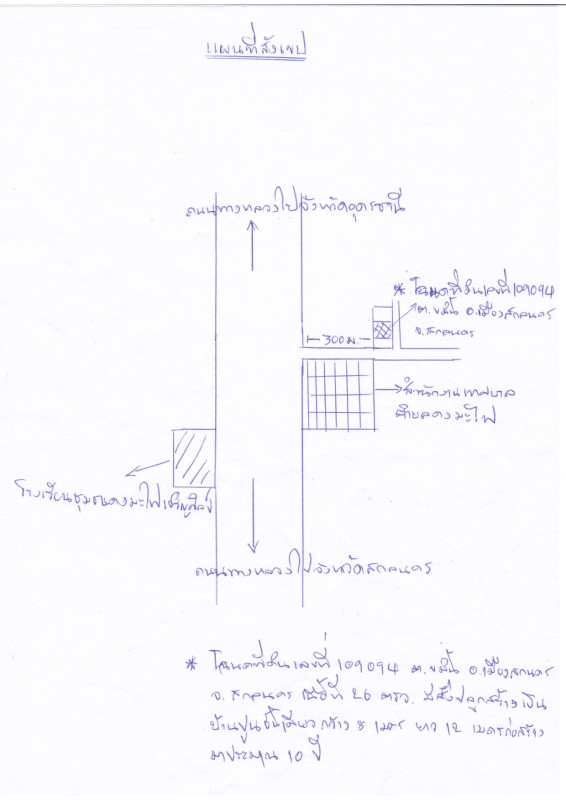 แผนที่สังเขป
ถนนทางหลวงไปจังหวัดอุดรธานี
* โฉนดที่ดินเลขที่ 109094
ต.ขมิ้น อ.เมืองสกลนคร
จ.สกลนคร
300 ม.
สำนักงานเทศบาล
ตำบลดงมะไฟ
โรงเรียนชุมชนดงมะไฟเจริญศิลป์
ถนนทางหลวงไปจังหวัดสกลนคร
* โฉนดที่ดินเลขที่ 109094 ต.ขมิ้น อ.เมืองสกลนคร
จ. สกลนคร เนื้อที่ 26 ตรว. มีสิ่งปลูกสร้างเป็น
บ้านปูนชั้นเดียว กว้าง 8 เมตร ยาว 12 เมตรก่อสร้าง
มาประมาณ 10 ปี